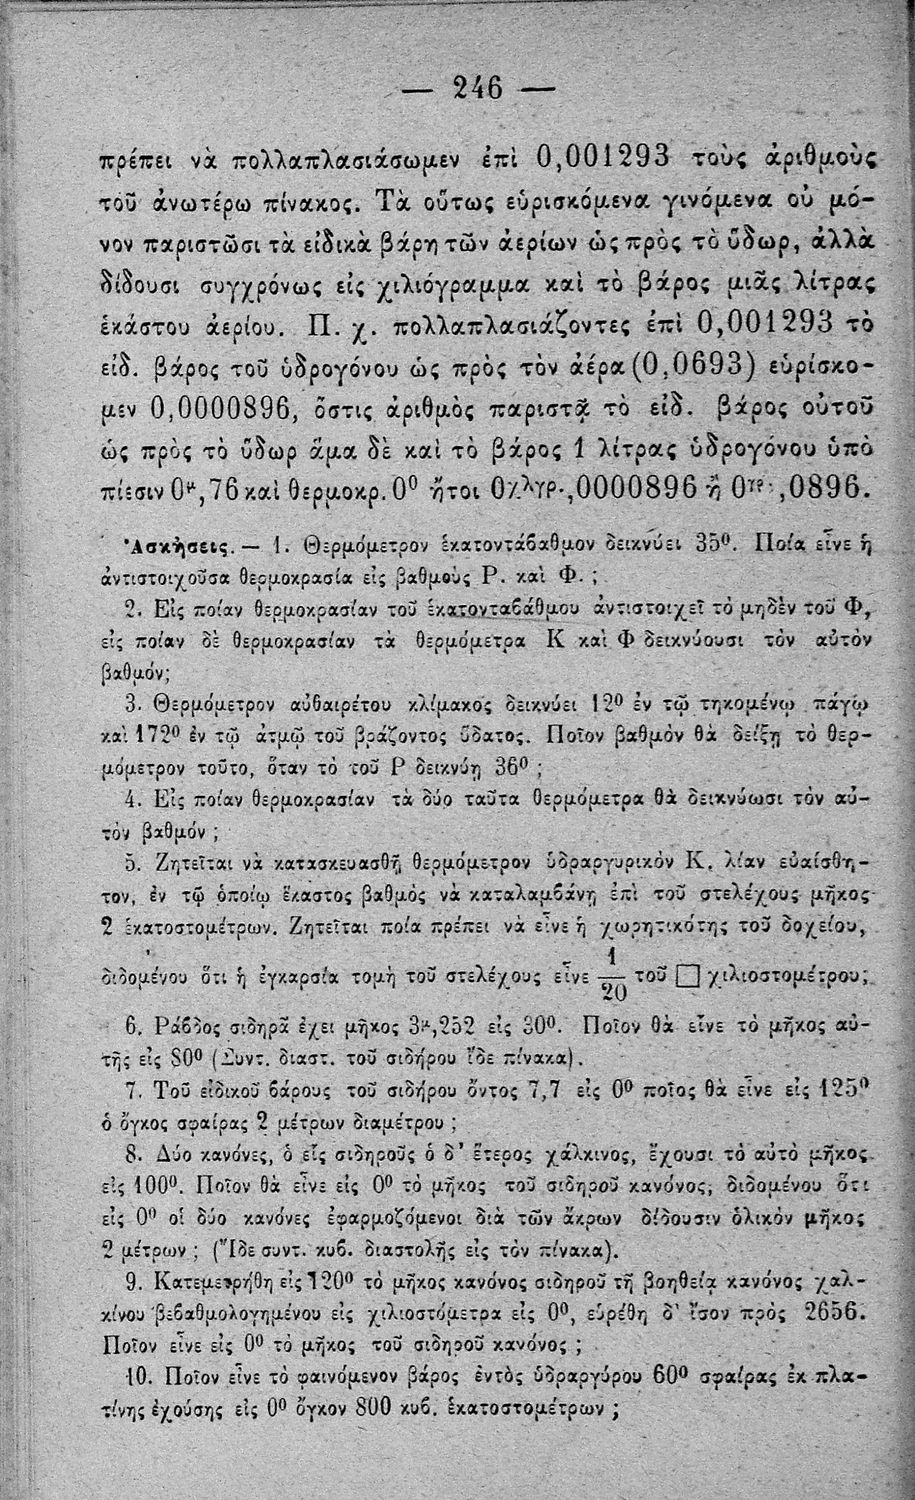 — 246 —
πρέπει νὰ πολλαπλασιάσωμεν ἐπὶ 0,001293 τοὺς ἀριθμοὺς
τοῦ ἀνωτέρω πίνακος. Τὰ οὕτως εὑρισκόμενα γινόμενα οὐ μό-
νον παριστῶσι τὰ εἰδικὰ βάρη τῶν ἀερίων ὡς πρὸς τὸ ὕδωρ, ἀλλὰ
δίδουσι συγχρόνως εἰς χιλιόγραμμα καὶ τὸ βάρος μιᾶς λίτρας
ἑκάστου ἀερίου. Π. χ. πολλαπλασιάζοντες ἐπὶ 0,001293 τὸ
εἰδ. βάρος τοῦ ὑδρογόνου ὡς πρὸς τὸν ἀέρα (0,0693) εὑρίσκο-
μεν 0,0000896, ὅστις ἀριθμὸς παριστᾷ τὸ εἰδ. βάρος οὑτοῦ
ὡς πρὸς τὸ ὕδωρ ἅμα δὲ καὶ τὸ βάρος 1 λίτρας ὑδρογόνου ὑπὸ
πίεσιν 0μ,76 καὶ θερμοκρ. 0⁰ ἤτοι 0χλγρ.,0000896 ἢ 0γρ.,0896.
Ἀσκήσεις. — 1. Θερμόμετρον ἑκατοντάβαθμον δεικνύει 35⁰. Ποία εἶνε ἡ
ἀντιστοιχοῦσα θερμοκρασία εἰς βαθμοὺς Ρ. καὶ Φ. ;
2. Εἰς ποίαν θερμοκρασίαν τοῦ ἑκατονταβάθμου ἀντιστοιχεῖ τὸ μηδὲν τοῦ Φ,
εἰς ποίαν δὲ θερμοκρασίαν τὰ θερμόμετρα Κ καὶ Φ δεικνύουσι τὸν αὐτὸν
βαθμόν;
3. Θερμόμετρον αὐθαιρέτου κλίμακος δεικνύει 12⁰ ἐν τῷ τηκομένῳ πάγῳ
καὶ 172⁰ ἐν τῷ ἀτμῷ τοῦ βράζοντος ὕδατος. Ποῖον βαθμὸν θὰ δείξῃ τὸ θερ-
μόμετρον τοῦτο, ὅταν τὸ τοῦ Ρ δεικνύῃ 36⁰ ;
4. Εἰς ποίαν θερμοκρασίαν τὰ δύο ταῦτα θερμόμετρα θὰ δεικνύωσι τὸν αὐ-
τὸν βαθμόν ;
5. Ζητεῖται νὰ κατασκευασθῇ θερμόμετρον ὑδραργυρικὸν Κ. λίαν εὐαίσθη-
τον, ἐν τῷ ὁποίῳ ἕκαστος βαθμὸς νὰ καταλαμβάνῃ ἐπὶ τοῦ στελέχους μῆκος
2 ἑκατοστομέτρων. Ζητεῖται ποία πρέπει νὰ εἶνε ἡ χωρητικότης τοῦ δοχείου,
διδομένου ὅτι ἡ ἐγκαρσία τομὴ τοῦ στελέχους εἶνε 1/20 τοῦ □ χιλιοστομέτρου;
6. Ράβδος σιδηρᾶ ἔχει μῆκος 3μ,252 εἰς 30⁰. Ποῖον θὰ εἶνε τὸ μῆκος αὐ-
τῆς εἰς 80⁰ (Συντ. διαστ. τοῦ σιδήρου ἴδε πίνακα).
7. Τοῦ εἰδικοῦ βάρους τοῦ σιδήρου ὄντος 7,7 εἰς 0⁰ ποῖος θὰ εἶνε εἰς 125⁰
ὁ ὄγκος σφαίρας 2 μέτρων διαμέτρου ;
8. Δύο κανόνες, ὁ εἷς σιδηροῦς ὁ δ' ἕτερος χάλκινος, ἔχουσι τὸ αὐτὸ μῆκος
εἰς 100⁰. Ποῖον θὰ εἶνε εἰς 0⁰ τὸ μῆκος τοῦ σιδηροῦ κανόνος, διδομένου ὅτι
εἰς 0⁰ οἱ δύο κανόνες ἐφαρμοζόμενοι διὰ τῶν ἄκρων δίδουσιν ὁλικὸν μῆκος
2 μέτρων ; (Ἴδε συντ. κυβ. διαστολῆς εἰς τὸν πίνακα).
9. Κατεμετρήθη εἰς 120⁰ τὸ μῆκος κανόνος σιδηροῦ τῇ βοηθείᾳ κανόνος χαλ-
κίνου βεβαθμολογημένου εἰς χιλιοστόμετρα εἰς 0⁰, εὑρέθη δ' ἴσον πρὸς 2656.
Ποῖον εἶνε εἰς 0⁰ τὸ μῆκος τοῦ σιδηροῦ κανόνος ;
10. Ποῖον εἶνε τὸ φαινόμενον βάρος ἐντὸς ὑδραργύρου 60⁰ σφαίρας ἐκ πλα-
τίνης ἐχούσης εἰς 0⁰ ὄγκον 800 κυβ. ἑκατοστομέτρων ;